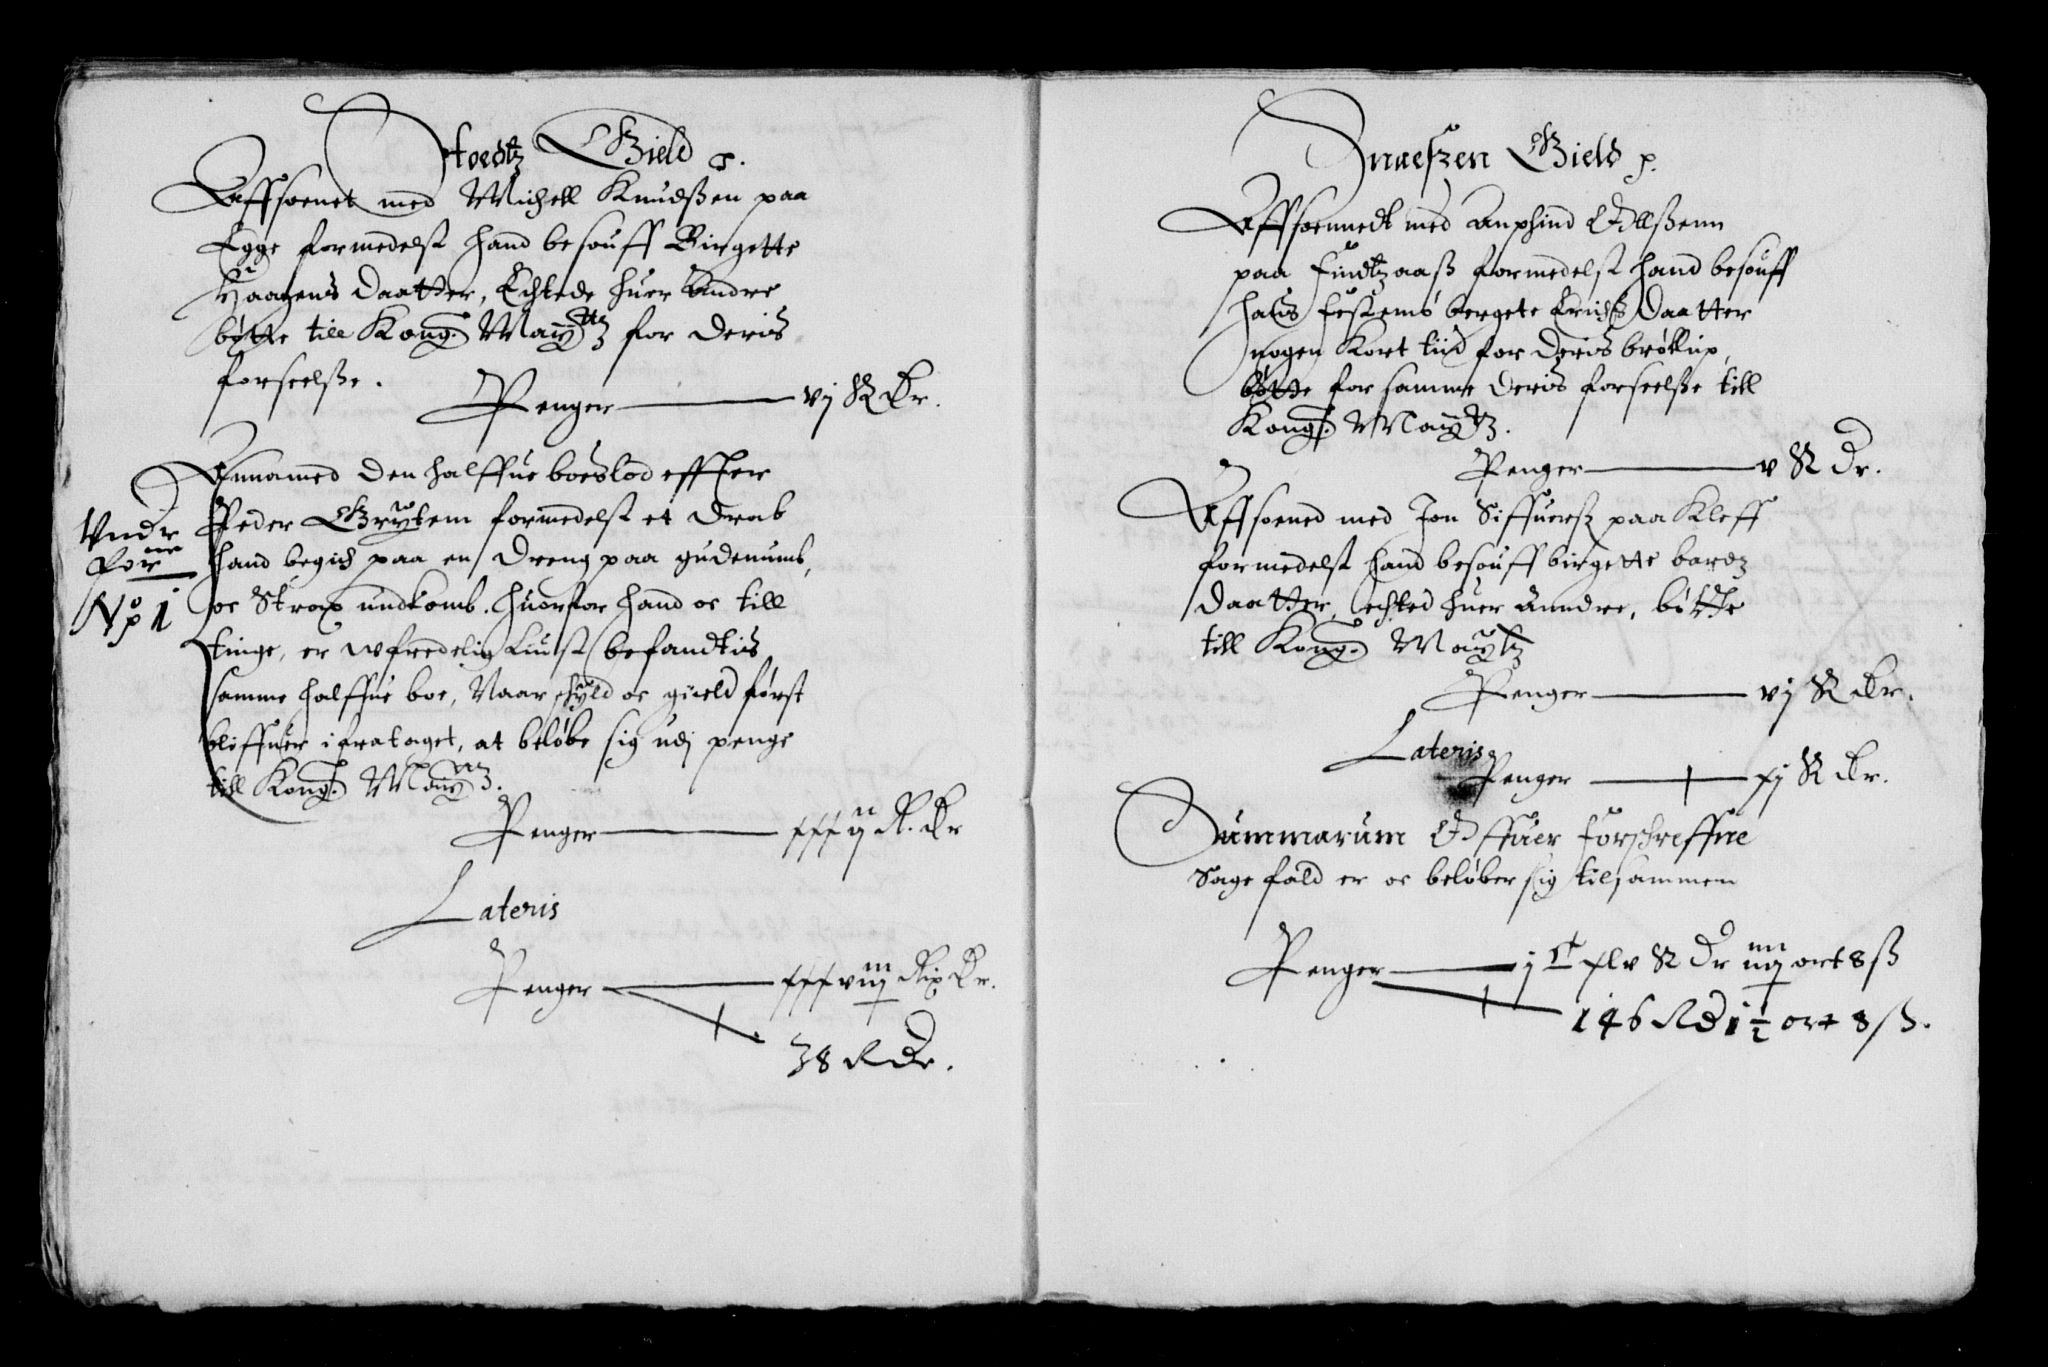 Stoedtz Gield p.
Affsoenet med Michell Knudßen paa
Egge formedelst hand besouff Birgette
Haagens Daatter, Echtede huer andre
bøtte till Kong: Maÿtz for deris
forseelße.
Penger — vj R Dr.
Annamed den halffue boeslod effter
Peder Grÿtem formedelst et Drab
hand begich paa en Dreng paa gudenumb,
oc Strax undkomb. huorfor hand oc till
tinge, er wfredelig Liust befandtis
samme halffue boe, Naar schÿld oc gield først
bleffuer ifrataget, at beløbe sig udj penge
till Kong: Maÿtz.
Vndr
No 1
Penger — xxxij R. Dr
Lateris
Penger — xxxviij Rix Dr.
38 R Dr.
Snaeszen Gield p.
Affsoennedt med Anphind Ollßenn
paa Findtzaaß formedelst hand besouff
hans festemø bergete Erichs Daatter
nogen Kort tiid for deris brøllup,
bøtte for samme deris forseelße till
Kong: Maÿtz.
Penger — v R Dr.
Affsoened med Jon Siffuersz paa Kleff
formedelst hand besouff birgette bardz
Daatter, echted huer anndre, bøtte
till Kong: Maÿtz
Penger — vj R Dr.
Lateris
Penger — xj R Dr.
Summarum Offuer forschreffne
Sage fald er oc beløber sig tilsammen
Penger — j C xlv R Dr iiij ort 8 ß
146 R D 1 ½ ort 8 ß.